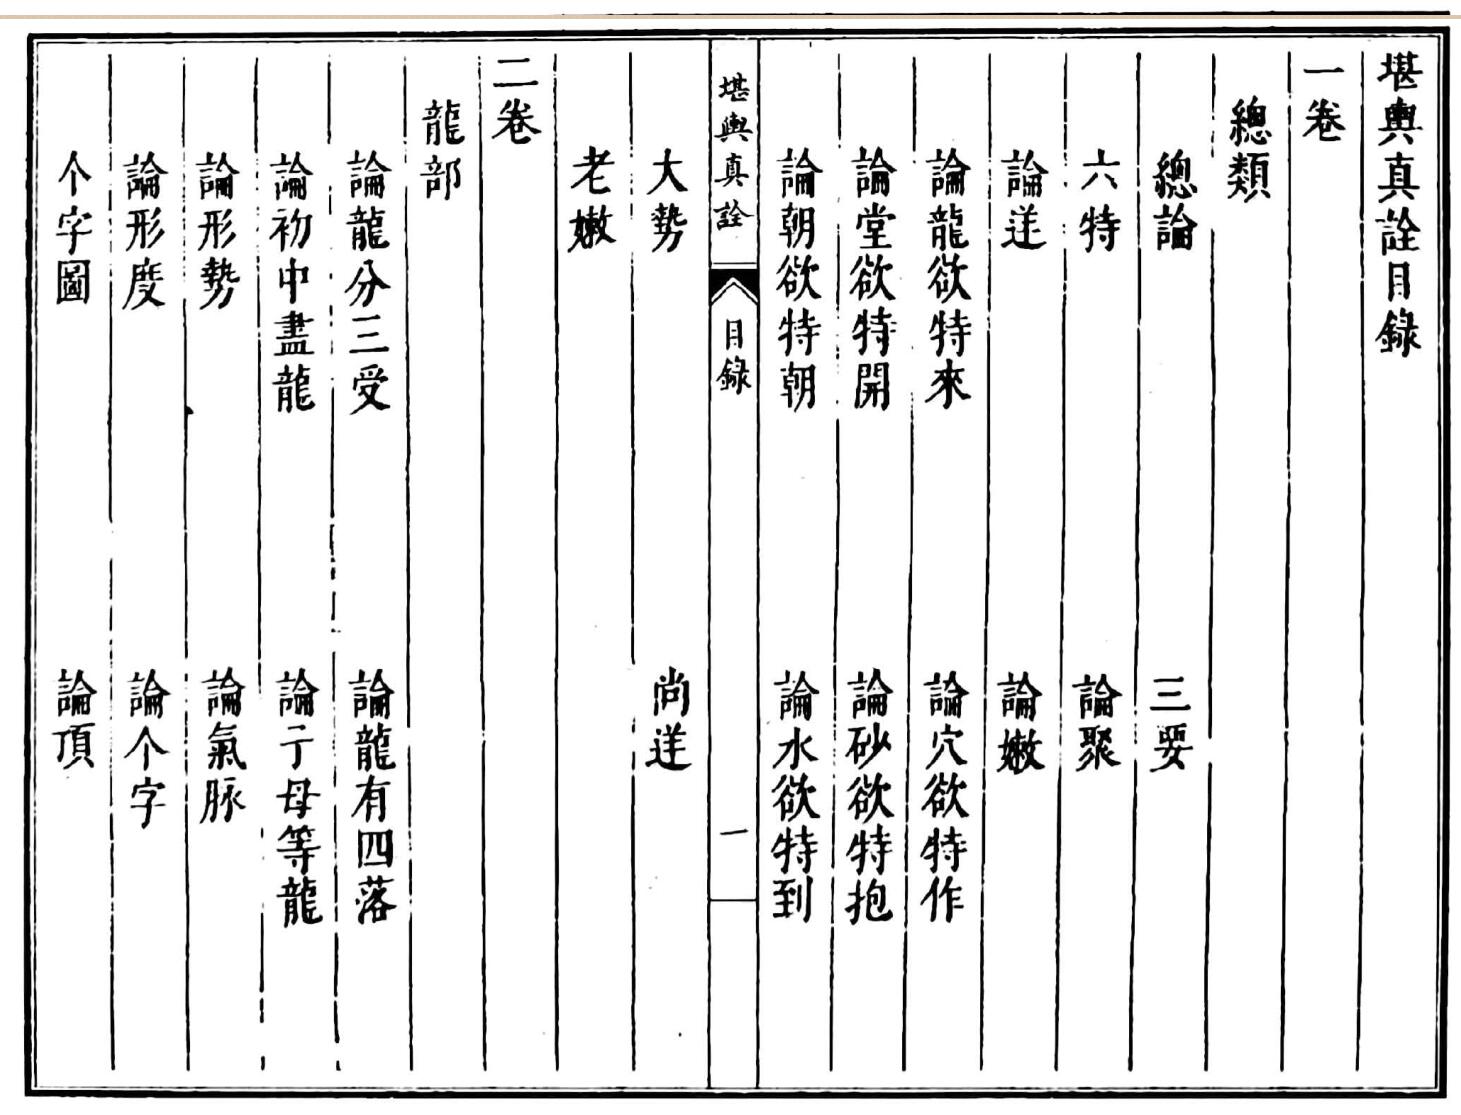 堪輿真詮目錄
一卷
總類
總論　三要
六特　論聚
論逆　論嫩
論龍欲特來　論穴欲特作
論堂欲特開　論砂欲特抱
論朝欲特朝　論水欲特到
堪輿真詮　目錄　一
大勢　尚逆
老嫩
二卷
龍部
論龍分三受　論龍有四落
論初中盡龍　論子母等龍
論形勢　論氣脉
論形度　論个字
个字圖　論頂